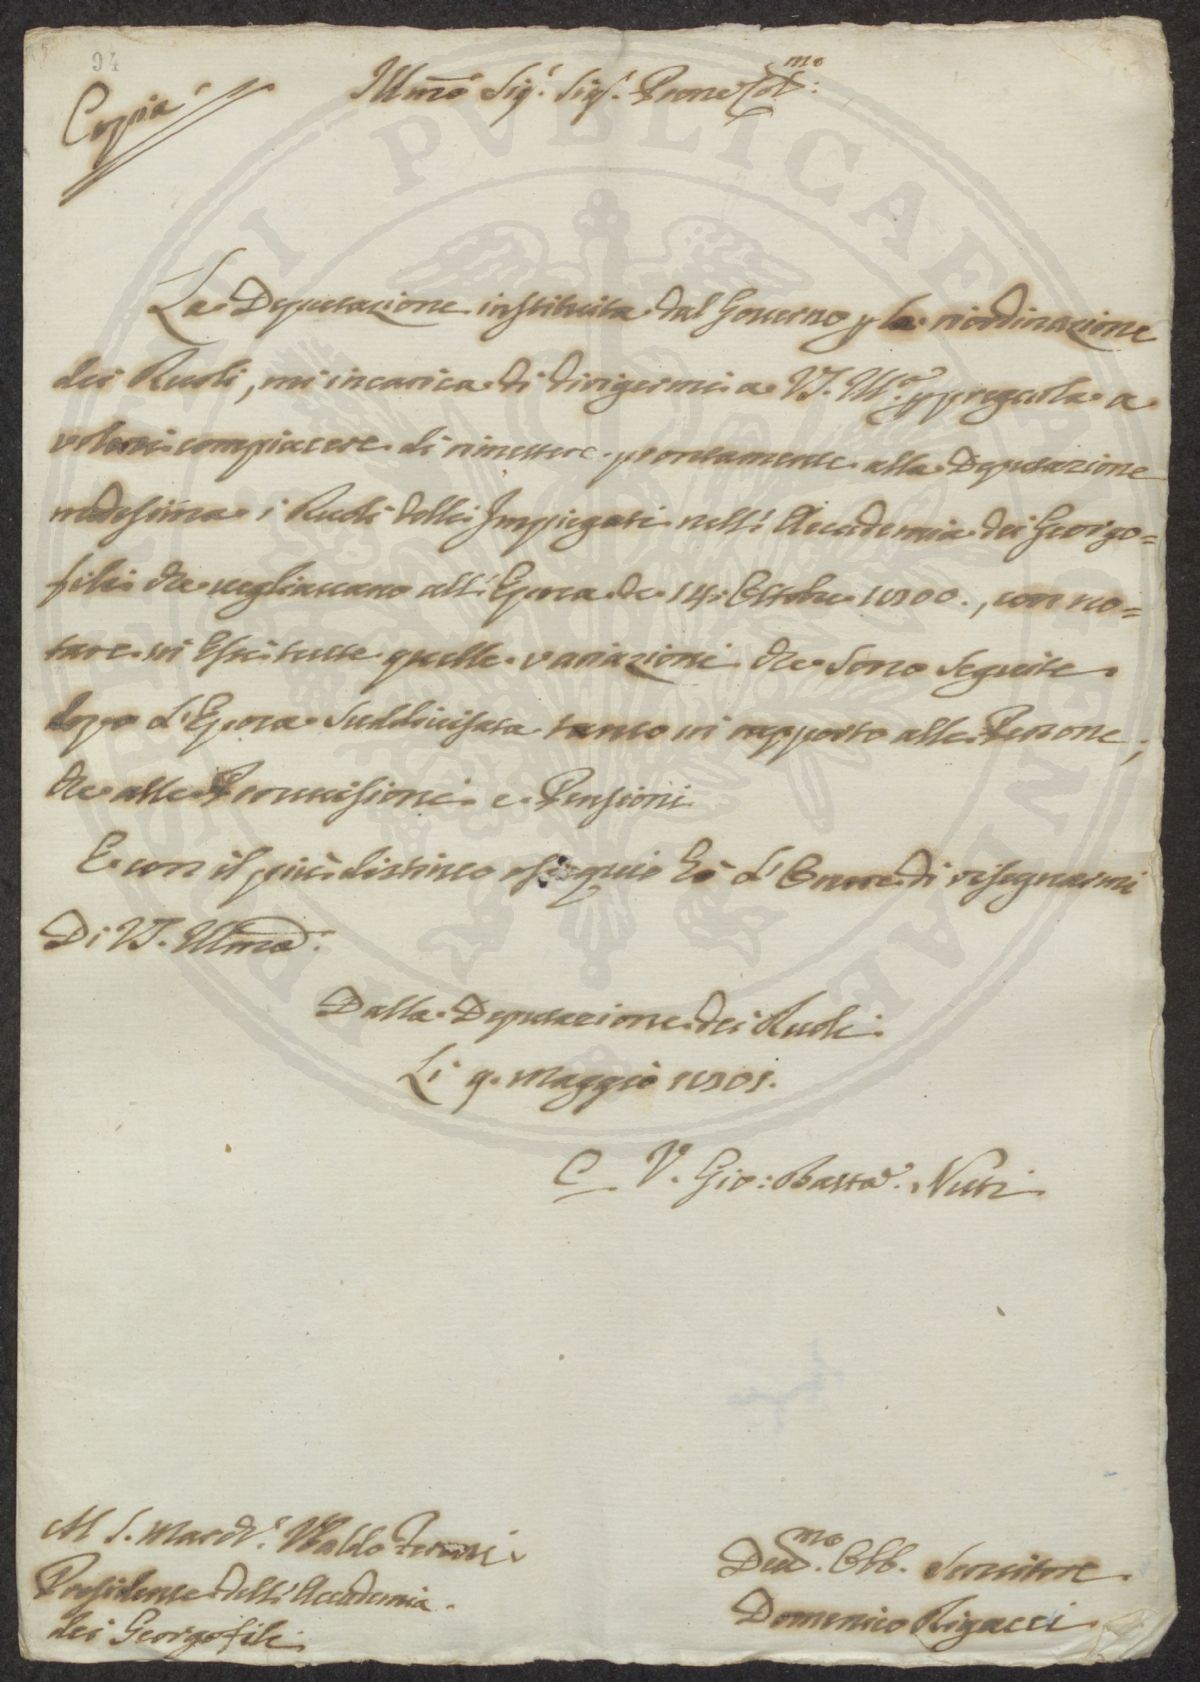 94
Copia
Illmo Sig.r Sig.r Prone Col.mo
La Deputazione instituita dal Governo p la riordinazione
dei Ruoli, mi incarica di dirigermi a VS. Ill.a p pregarla a
volersi compiacere di rimettere prontamente alla Deputazione
medesima i Ruoli delli Impiegati nell' Accademia dei Georgo=
fili che vegliavano all' Epoca de 14. Ottobre 1800., con no=
tare in essi tutte quelle variazioni che sono seguite
dopo l'Epoca suddivisata tanto in rapporto alle Persone,
che alle Provvisioni e Pensioni
E con il più distinto ossequio hò l'Onore di rassegnarmi
Di VS. Illma
Dalla Deputazione dei Ruoli
Li 9. Maggio 1801.
V. Gio: Batta. Nuti
Al S. March.e Ubaldo Feroni
Presidente dell' Accademia
dei Georgofili
Dev.mo Obb. Servitore
Domenico Rigacci
PVBLICAE